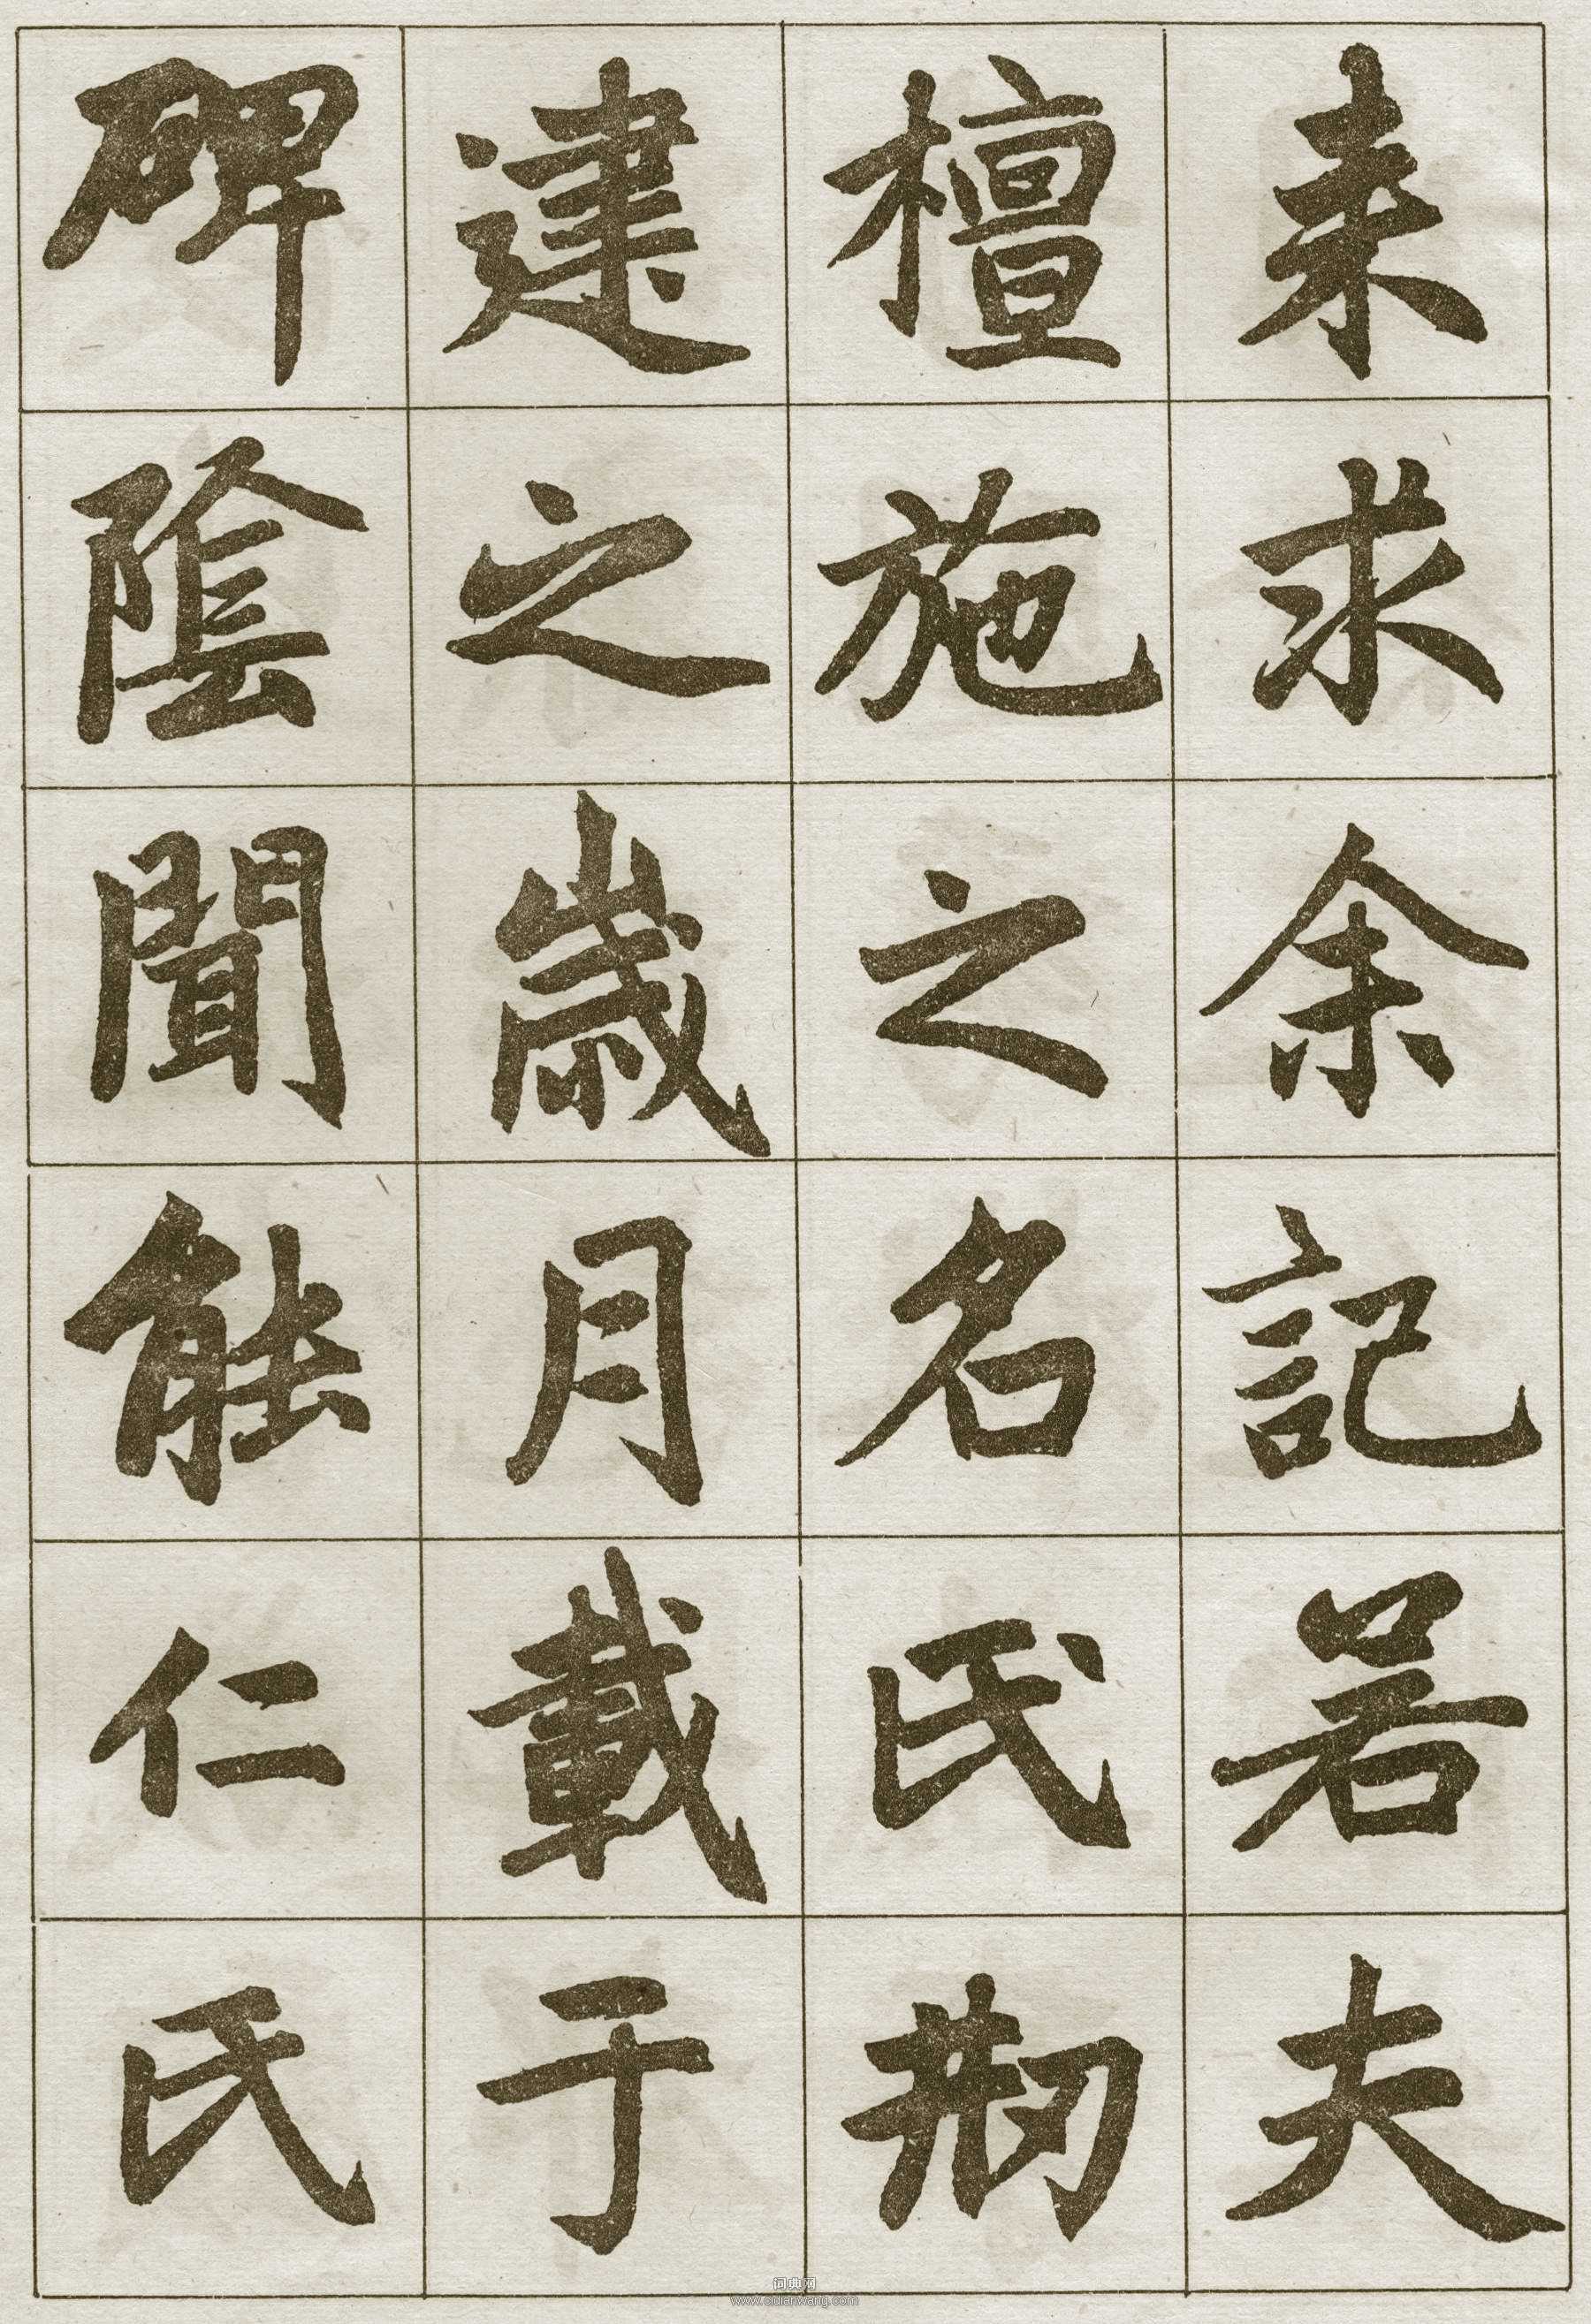 来求余記若夫
檀施之名氏刱
建之歲月載于
碑陰聞能仁氏
词典网
www.cidianwang.com